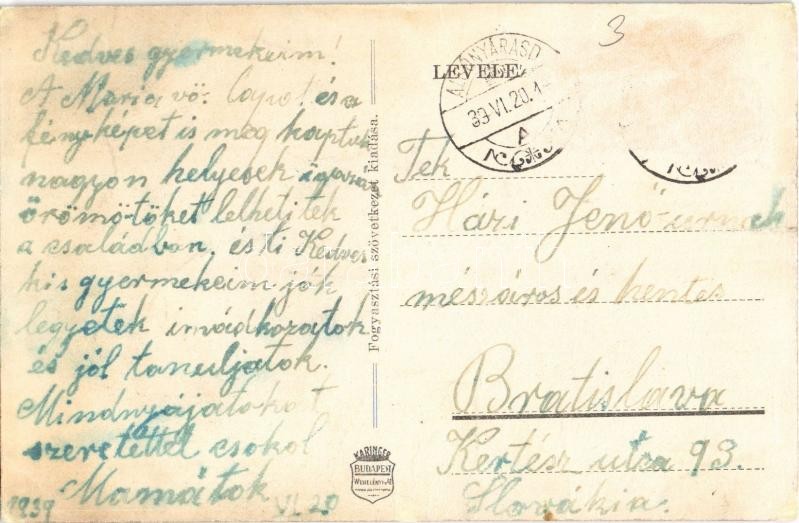 Kedves gyermekeim!
A Maria vö. Lapot és a
fényképet is meg kaptuk
nagyon helyesek igazán
örömötöket lelhetitek
a családban, és ti Kedves
kis gyermekeim jók
legyetek imádkozatok
és jól tanuljatok.
Mindnyájatokat
szeretettel csokol
Mamátok
1939 VI 20
Fogyasztási szövetkezet kiadása.
KARINGER
BUDAPEST
3
LEVELE
NYÁRASD
39 VI. 20. 1
A
Tek
Hári Jenő úrnak
mészáros és hentes
Bratislava
Kertész utza 93.
Slovákia.